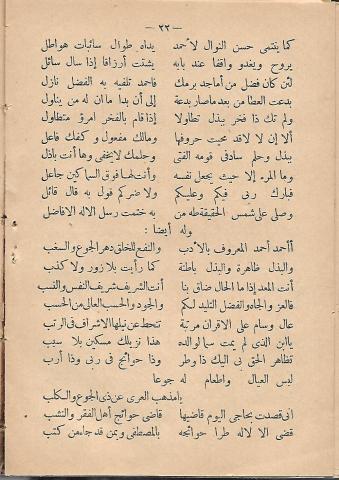 — ٢٢ —
كما ينتمى حسن النوال لأحمد يداه طوال سائبات هواطل
يروح ويغدو واقفا عند بابه يشتت أرزاقا إذا سال سائل
لئن كان فضل من أماجد برمك فاحمد تلفيه به الفضل نازل
بدعت العطا من بعد ماصار بدعة إلى أن بدا ما ان له من يناول
ولم تك ذا فخر ببذل تطاولا إذا قام بالفخر امرؤ متطاول
ألا إن لا لاقد محيت حروفها ومالك مفعول وكفك فاعل
ببذل وحلم سادفى قومه الفتى وحلمك لايخفى وها أنت باذل
وما المرء إلا حيث يجعل نفسه وأنت لها فوق السماكين جاعل
فبارك ربى فيكم وعليكم ولا ضركم قول به قال قائل
وصلى على شمس الحقيقة طه من به ختمت رسل الاله الافاضل
وله أيضا :
أأحمد أحمد المعروف بالأدب والنفع للخلق دهر الجوع والسغب
والبذل ظاهرة والبذل باطنة كما رأيت بلا زور ولا كذب
أنت المعد إذا ما الحال ضاق بنا أنت الشريف شريف النفس والنسب
فالعز والجاه والفضل التليد لكم والجود والحسب العالى من الحسب
عال وسام على الاقران مرتبة تنحط عن نيلها الاشراف فى الرتب
ياابن الذى لم يمت سيما والده هذا نزيلك مسكين بلا سبب
تظاهر الحق بى اليك ذا وطر وذا حوائج فى ربى وذا أرب
لبس العيال واطعام له جوعا
يامذهب العرى عن ذى الجوع والكلب
انى قصدت بحاجى اليوم قاضيها قاضى حوائج أهل الفقر والنشب
قضى الا لاله طرا حوائجه بالمصطفى وبمن قد جاء من كتب